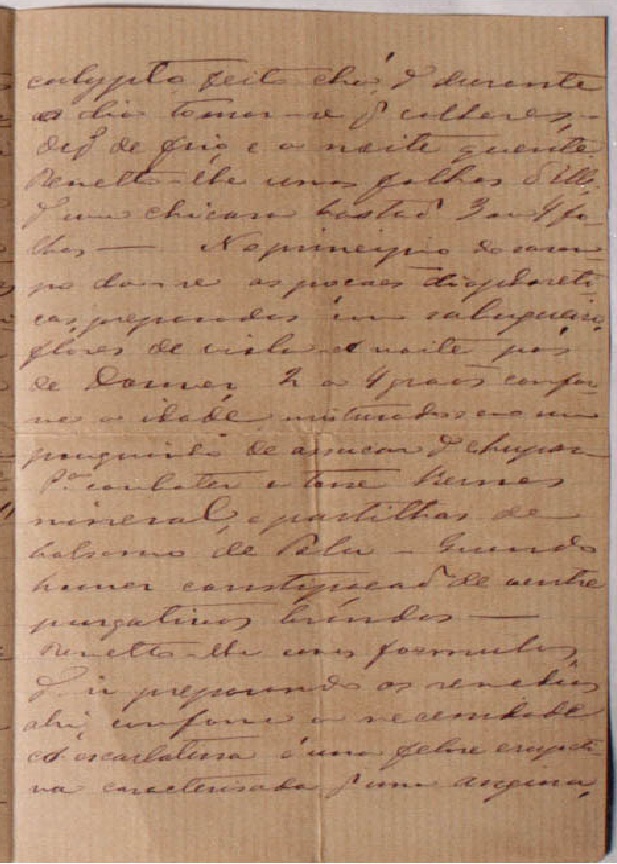 calypto feito chá, e durante
o dia tomar-se colheres,
de frio e a noite quente
Remetto-lhe umas folhas d'elle,
uma chicara bastaõ 3 ou 4 fo-
lhas — No principio do saram-
po dar-se as poções diaphoreti-
cas, preparadas em sabugueiro,
flores de viola a noite pós
de Dower, 2 a 4 grãos confor-
me a idade, misturados com um
pouquinho de assucar chupar
Pª combater a tosse Kermes
mineral, e pastilhas de
balsamo de Tolu — Quando
houver constipação de ventre
purgativos brandos —
Remetto-lhe umas formulas,
ir preparando os remedios
ahi, conforme a necessidade
A escarlatina é uma febre erupti-
va caracterisada uma angina,